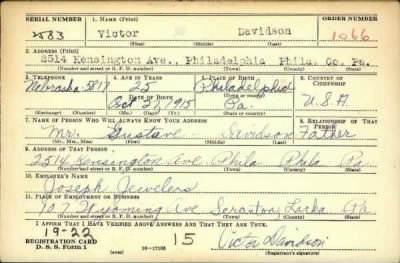 SERIAL NUMBER 1. Name (Print) ORDER NUMBER
Victor Davidson 1066
(First) (Middle) (Last)
2. Address (Print)
2514 Kensington Ave., Philadelphia Phila. Co. Pa.
(Number and street or R. F. D. number) (Town) (County) (State)
3. Telephone 4. Age in Years 5. Place of Birth 6. Country of Citizenship
Nebraska 25 Philadelphia
Date of Birth (Town or county)
Oct 27, 1915 Pa. U.S.A.
(Exchange) (Number) (Mo.) (Day) (Yr.) (State or country)
7. Name of Person Who Will Always Know Your Address 8. Relationship of That Person
Mr. Gustave Davidson Father
(Mr., Mrs., Miss) (First) (Middle) (Last)
9. Address of That Person
2514 Kensington Ave Phila Phila Pa
(Number and street or R. F. D. number) (Town) (County) (State)
10. Employer's Name
Joseph Jewelers
11. Place of Employment or Business
107 Wyoming Ave Scranton, Lacka Pa.
(Number and street or R. F. D. number) (Town) (County) (State)
I Affirm That I Have Verified Above Answers and That They Are True.
19-22
REGISTRATION CARD
D. S. S. Form 1 (over) 16—17105 15 Victor Davidson
(Registrant's signature)